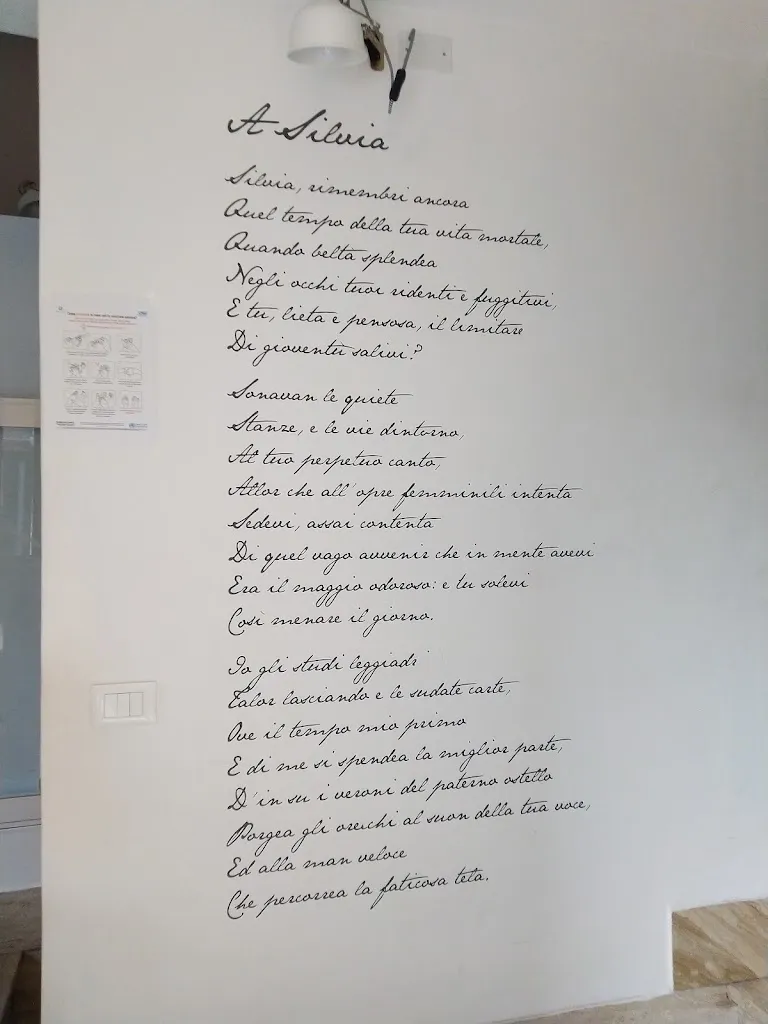 A Silvia
Silvia, rimembri ancora
Quel tempo della tua vita mortale,
Quando belta splendea
Negli occhi tuoi ridenti e fuggitivi,
E tu, lieta e pensosa, il limitare
Di gioventu salivi?
Sonavan le quiete
Stanze, e le vie dintorno,
Al tuo perpetuo canto,
Allor che all'opre femminili intenta
Sedevi, assai contenta
Di quel vago avvenir che in mente avevi
Era il maggio odoroso: e tu solevi
Così menare il giorno.
Io gli studi leggiadri
Talor lasciando e le sudate carte,
Ove il tempo mio primo
E di me si spendea la miglior parte,
D'in su i veroni del paterno ostello
Porgea gli orecchi al suon della tua voce,
Ed alla man veloce
Che percorrea la faticosa tela.